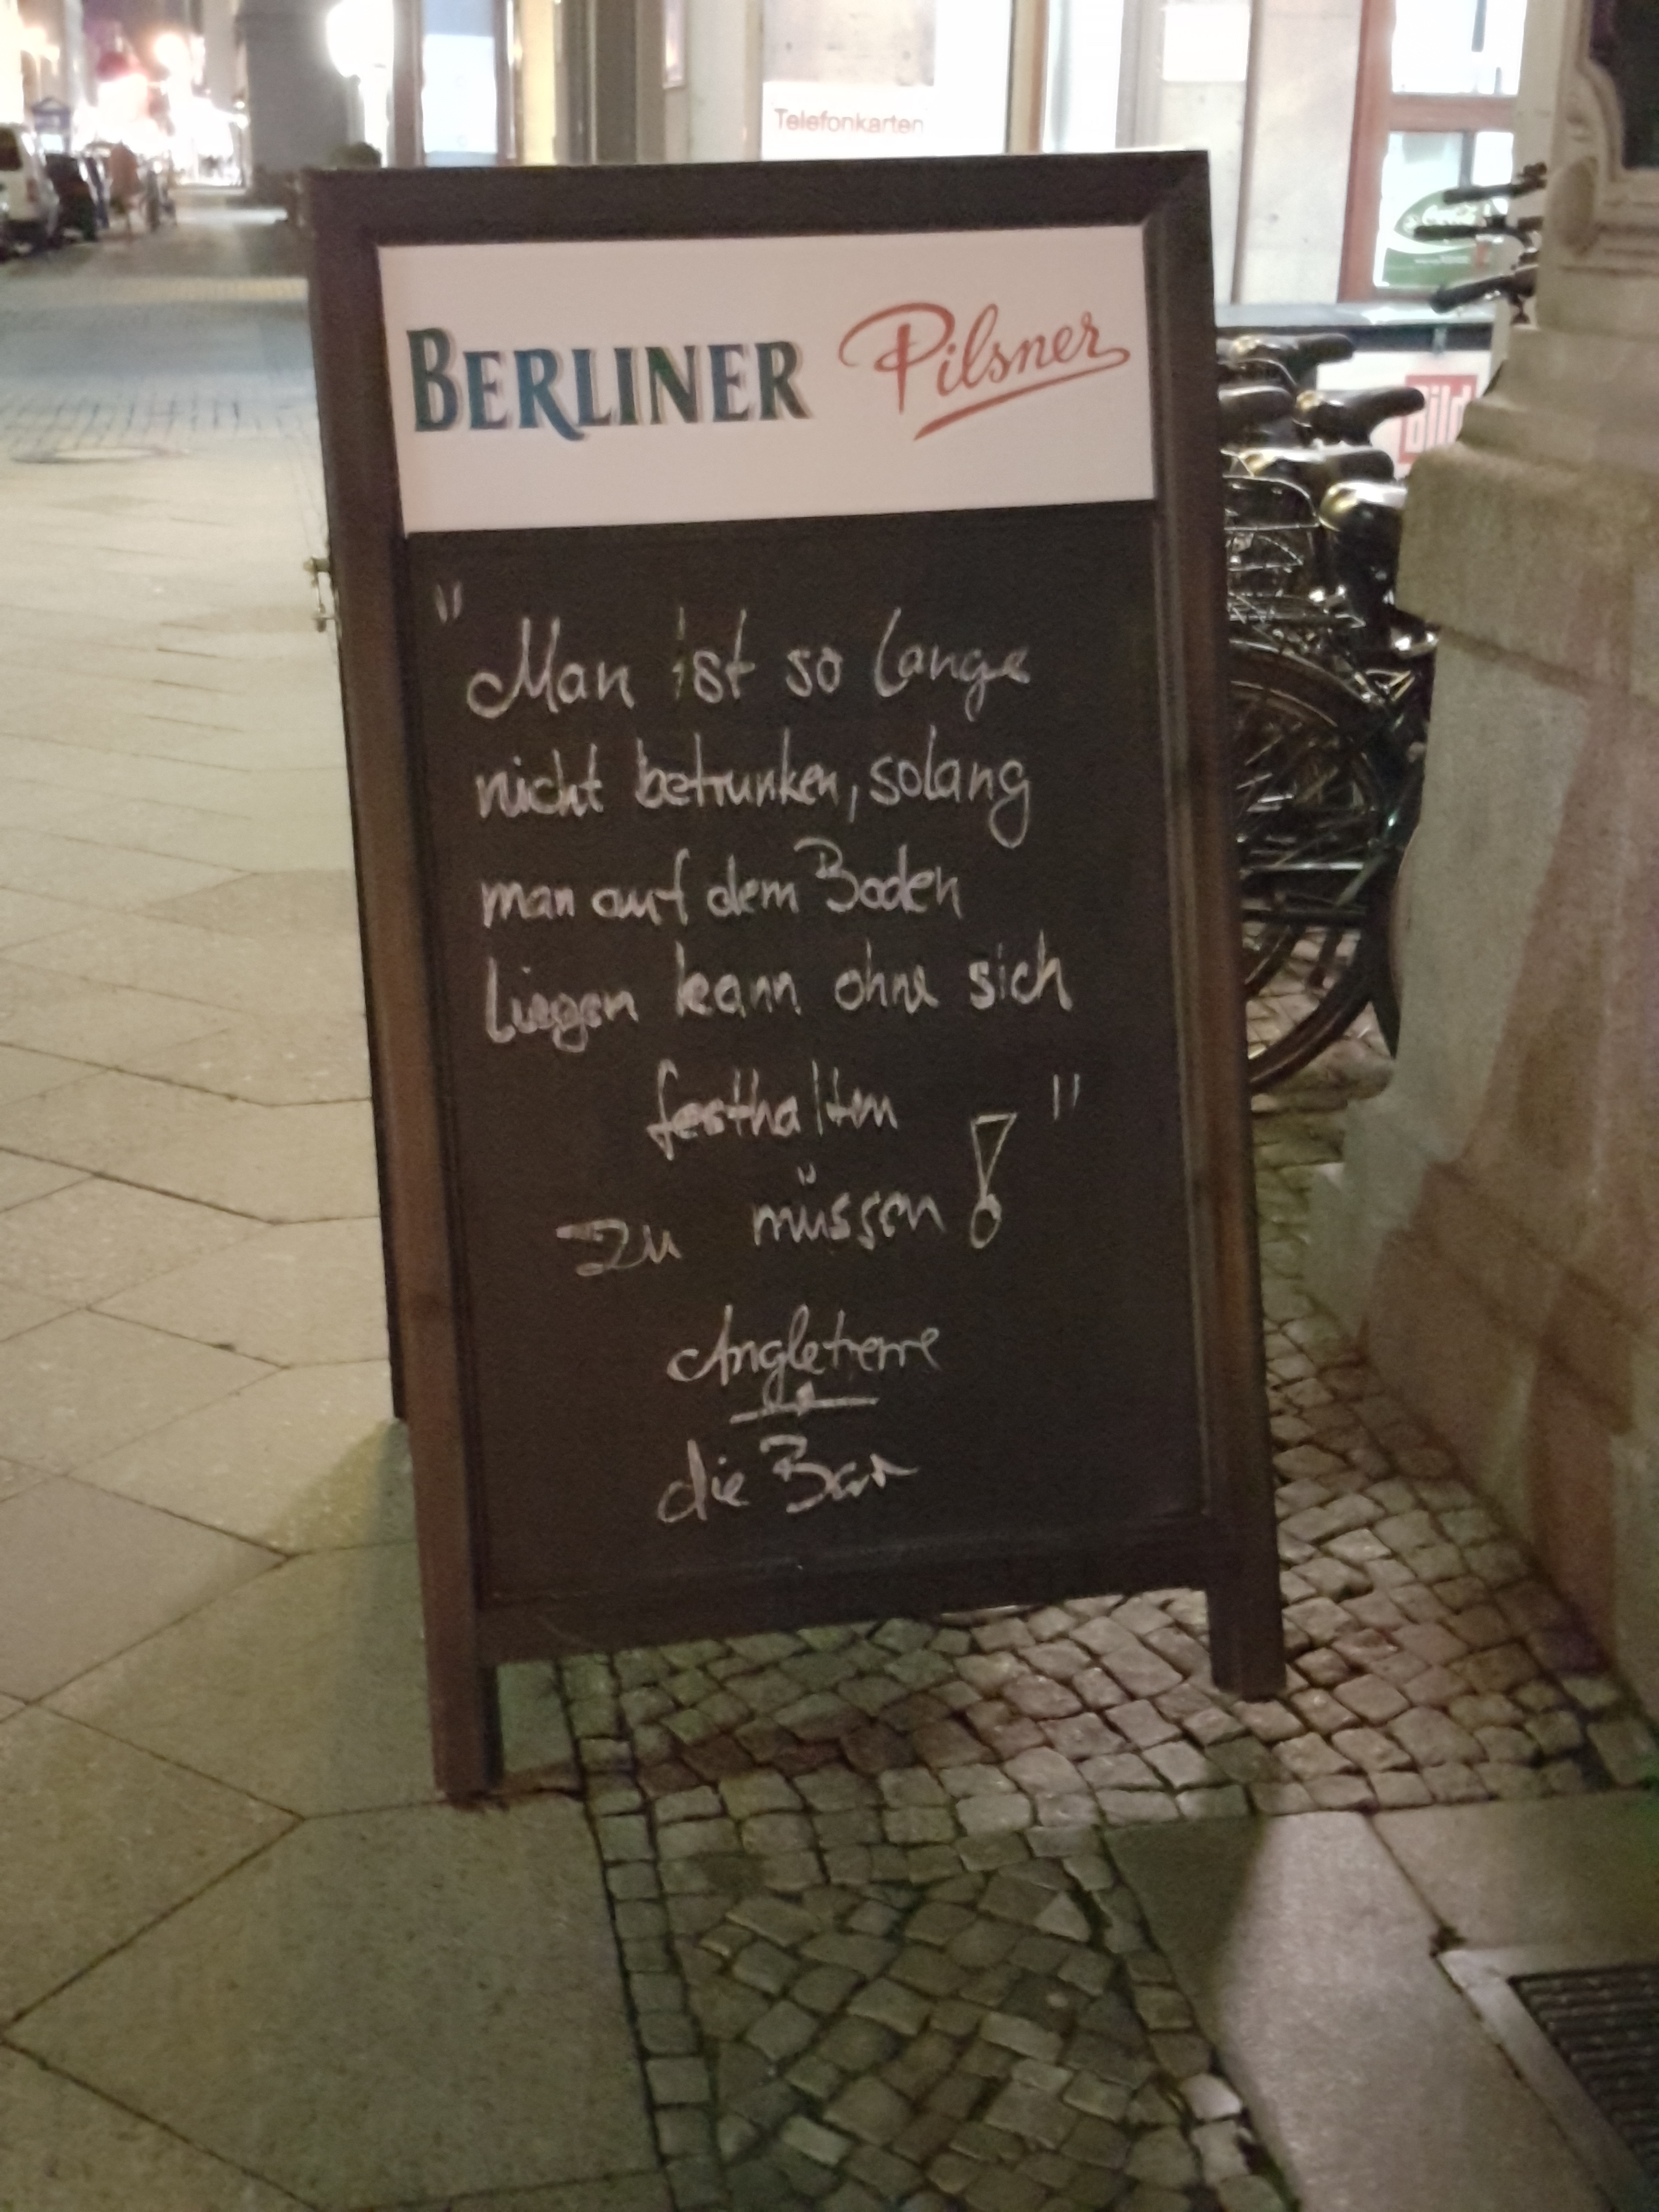 Telefonkarten
Coca-Cola
BERLINER Pilsner
Bild
"Man ist so lange
nicht betrunken, solang
man auf dem Boden
liegen kann ohne sich
festhalten
zu müssen!"
Angleterre
die Bar